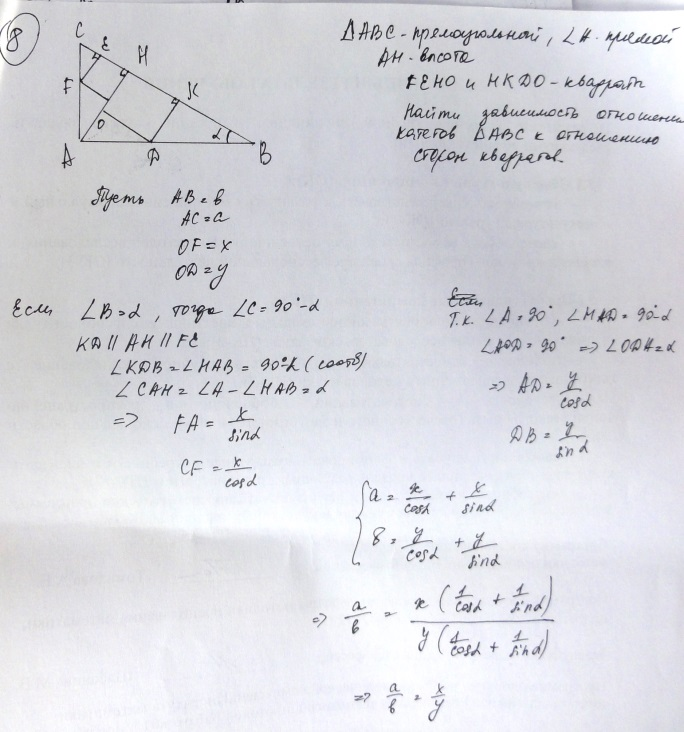 8
C
E
H
F
K
O
α
A
D
B
ΔABC - прямоугольной, ∠A - прямой
AH - высота
FEHO и HKDO - квадраты
Найти зависимость отношения
катетов ΔABC к отношению
сторон квадратов.
Пусть AB = b
AC = a
OF = x
OD = y
Если ∠B = α, тогда ∠C = 90° - α
KD || AH || FE
∠KDB = ∠HAB = 90° - α (соотв)
∠CAH = ∠A - ∠HAB = α
=> FA = x/sinα
CF = x/cosα
Если
Т.к. ∠A = 90°, ∠HAD = 90° - α
∠AOD = 90° => ∠ODA = α
=> AD = y/cosα
DB = y/sinα
{ a = x/cosα + x/sinα
b = y/cosα + y/sinα
=> a/b = x (1/cosα + 1/sinα) / y (1/cosα + 1/sinα)
=> a/b = x/y